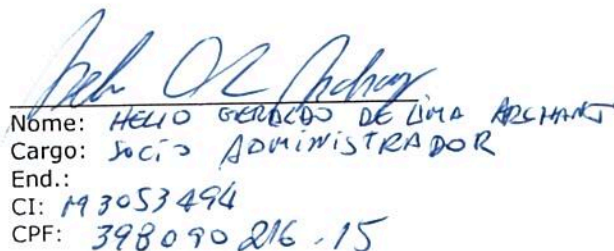 Nome: HELIO GERALDO DE LIMA ARCHANJ
Cargo: SOCIO ADMINISTRADOR
End.:
CI: M3053494
CPF: 398090216.15